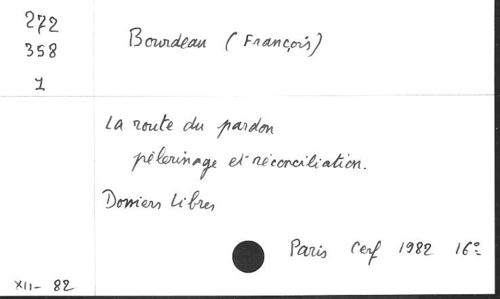 272
358
1
Bourdeau (François)
La route du pardon
pèlerinage et réconciliation.
Dossiers Libres
Paris Cerf 1982 16°
XII- 82